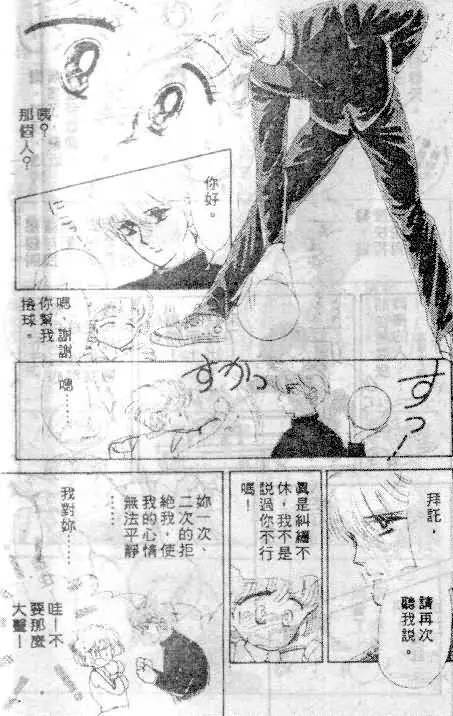 咦？
那個人？
你好。
にこっ
嗯，謝謝
你幫我
撿球。
すっ！
すかっ
嗯……
拜託，
請再次
聽我說。
真是糾纏不
休，我不是
說過你不行
嗎！
妳一次、
二次的拒
絕我，使
我的心情
無法平靜
……
我對妳……
哇！不
要那麼
大聲！